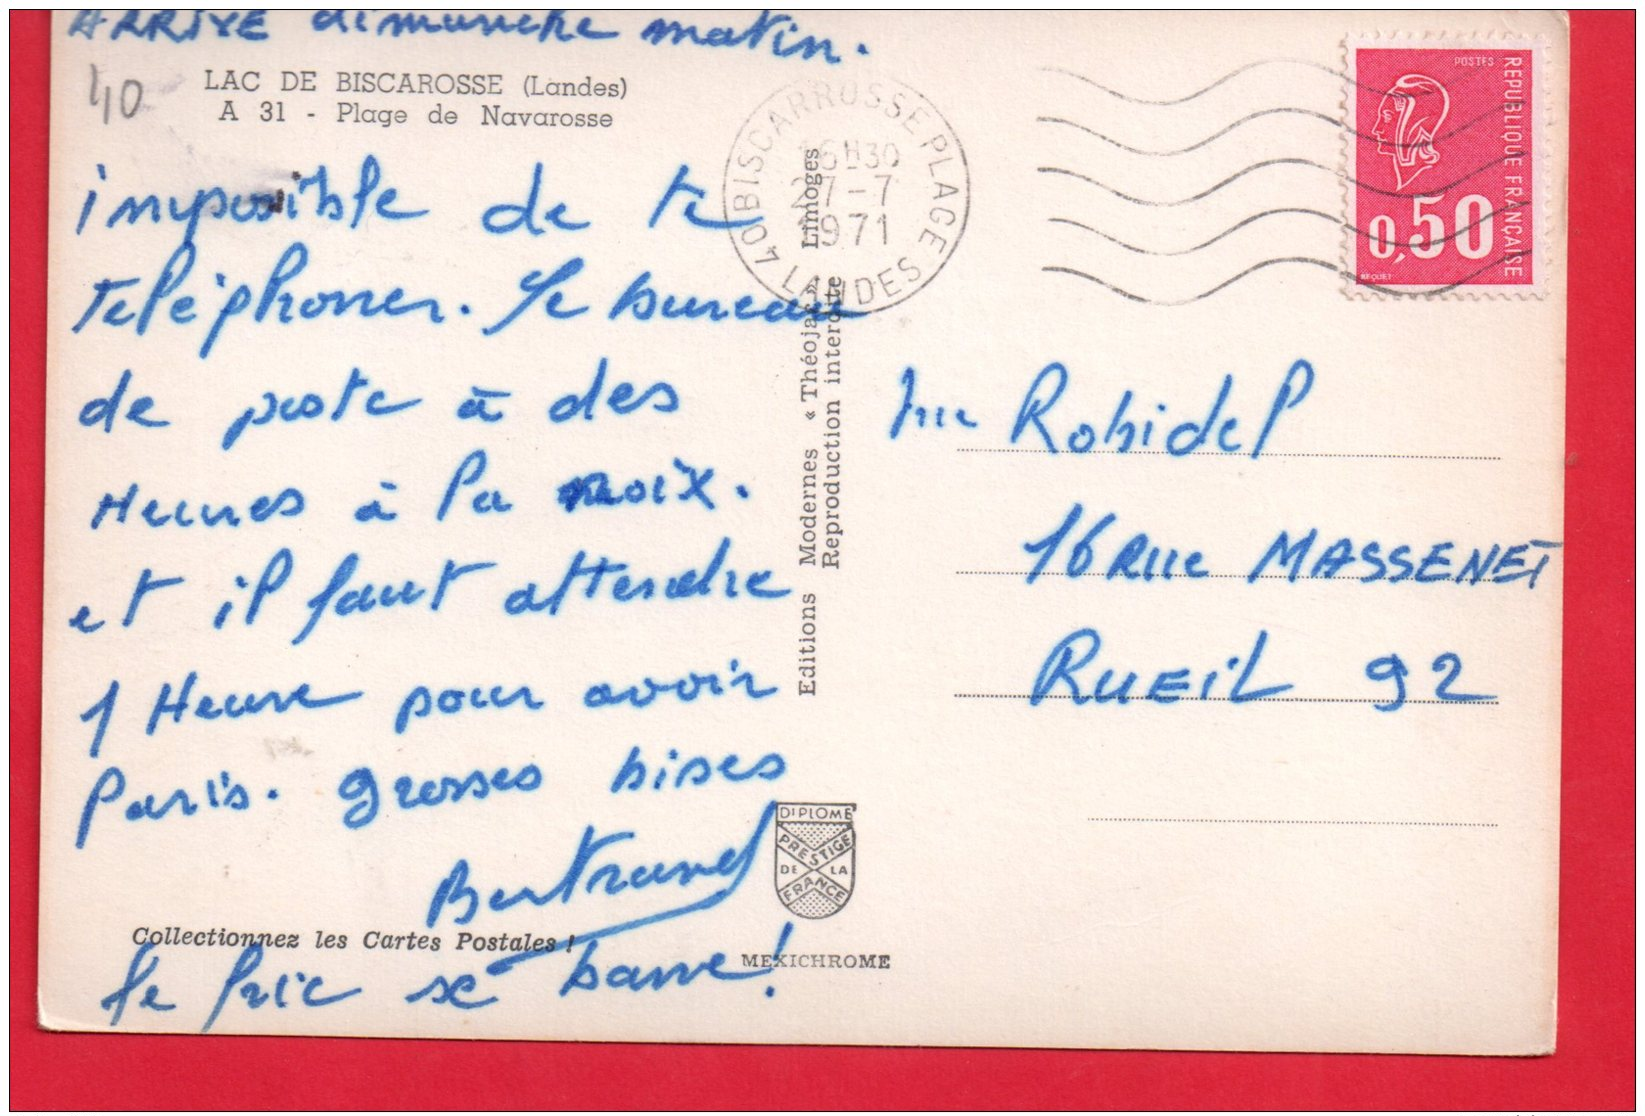 ARRIVE dimanche matin.
40
LAC DE BISCAROSSE (Landes)
A 31 - Plage de Navarosse
impossible de te
telephoner. Le bureau
de poste à des
Heures à la noix.
et il faut attendre
1 Heure pour avoir
Paris. grosses bises
Bertrand
Collectionnez les Cartes Postales !
le fric se barre!
Editions Modernes « Théojac » Limoges
Reproduction interdite
DIPLOME
PRESTIGE
DE LA
FRANCE
MEXICHROME
40 BISCARROSSE PLAGE
16H30
27-7
1971
LANDES
POSTES
REPUBLIQUE FRANÇAISE
0,50
BEQUET
Robidel
16 Rue MASSENET
RUEIL 92